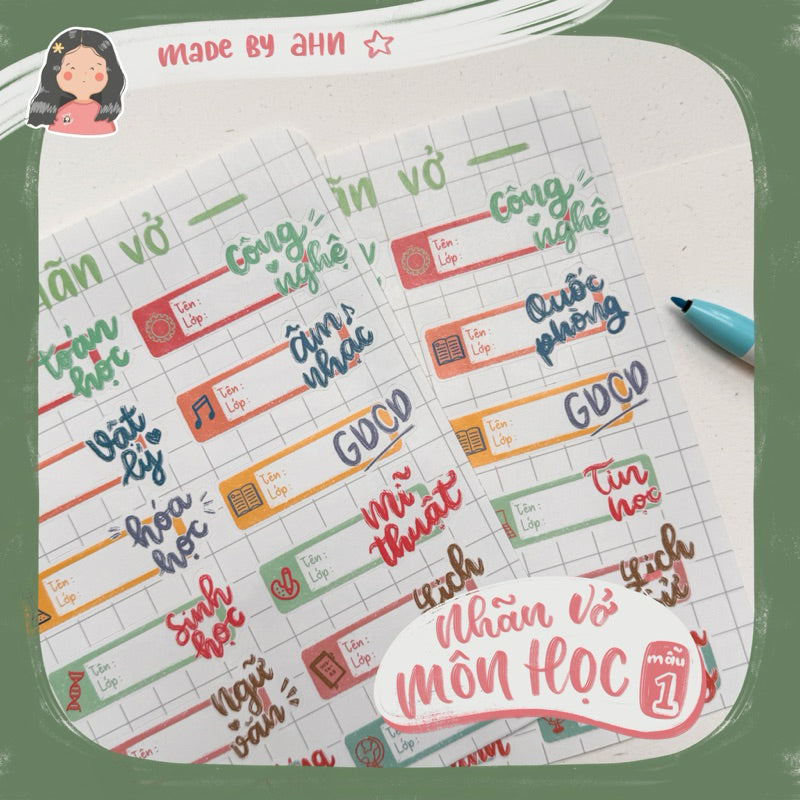 MADE BY AHN
ãn vở
ãn vở
Công nghệ
Tên:
Lớp:
toán học
Âm nhạc
Tên:
Lớp:
Vật lý
GDCD
Tên:
Lớp:
hóa học
Tên:
Lớp:
Mĩ thuật
Tên:
Lớp:
Sinh học
Tên:
Lớp:
Lịch
Tên:
Lớp:
Ngữ văn
Tên:
Tên:
Lớp:
Công nghệ
Tên:
Lớp:
Quốc phòng
Tên:
Lớp:
GDCD
Tên:
Lớp:
Tin học
Tên:
Lớp:
Lịch
Nhãn vở
MÔN HỌC
mẫu
1